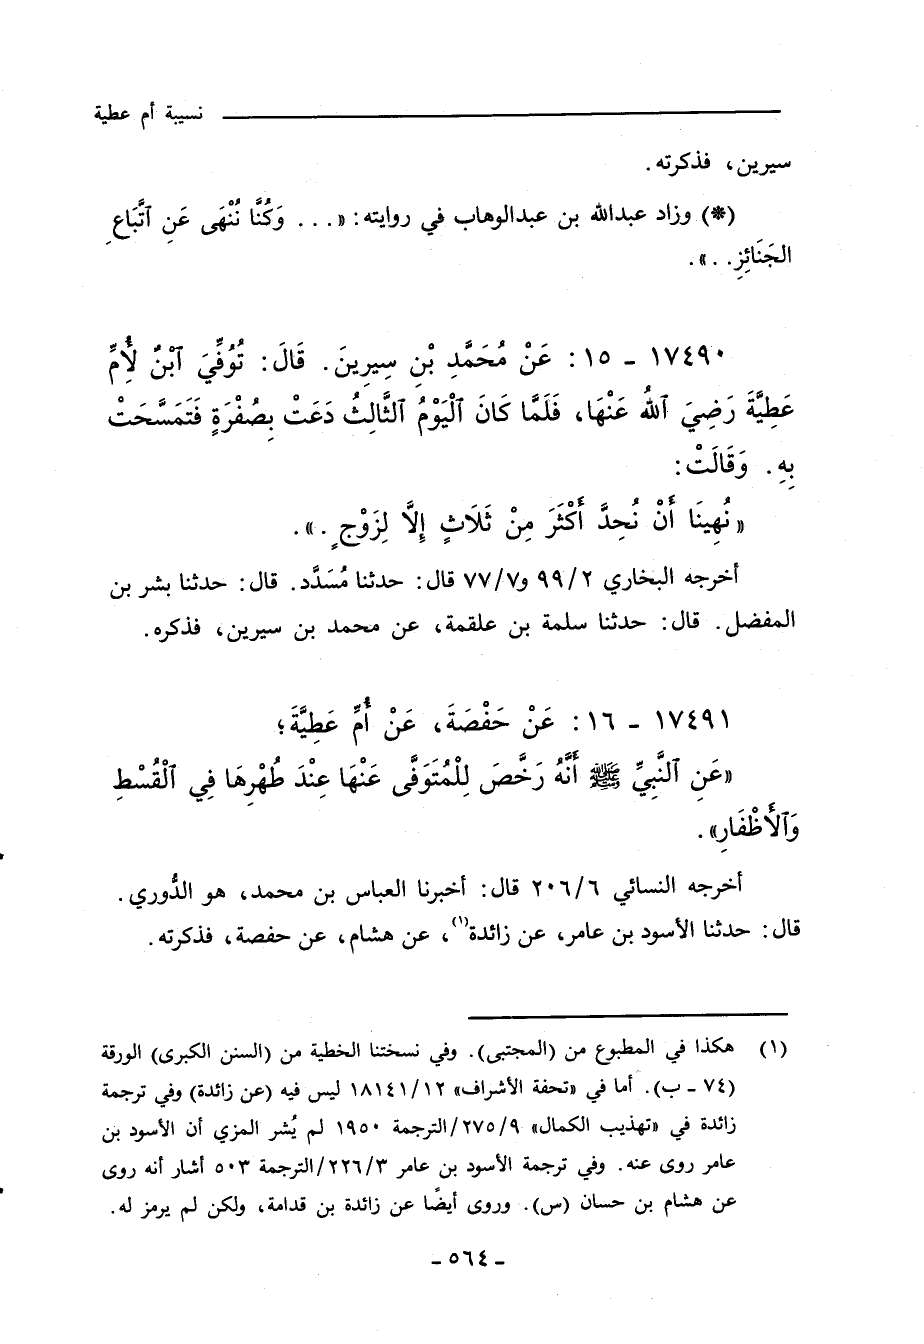 نسيبة أم عطية
سيرين، فذكرته.
(*) وزاد عبدالله بن عبدالوهاب في روايته: «... وَكُنَّا نُنْهَى عَنِ ٱتَّبَاعِ
الجَنَائِزِ..».
١٧٤٩٠ - ١٥: عَنْ مُحَمَّدِ بْنِ سِيرِينَ. قَالَ: تُوُفِّيَ ٱبْنٌ لُأِمِّ
عَطِيَّةَ رَضِيَ ٱللهُ عَنْهَا، فَلَمَّا كَانَ ٱلْيَوْمُ ٱلثَّالِثُ دَعَتْ بِصُفْرَةٍ فَتَمَسَّحَتْ
بِهِ. وَقَالَتْ:
«نُهِينَا أَنْ نُحِدَّ أَكْثَرَ مِنْ ثَلَاثٍ إِلَّا لِزَوْجٍ.».
أخرجه البخاري ٩٩/٢ و٧٧/٧ قال: حدثنا مُسَدَّد. قال: حدثنا بشر بن
المفضل. قال: حدثنا سلمة بن علقمة، عن محمد بن سيرين، فذكره.
١٧٤٩١ - ١٦: عَنْ حَفْصَةَ، عَنْ أُمِّ عَطِيَّةَ؛
«عَنِ ٱلنَّبِيِّ ﷺ أَنَّهُ رَخَّصَ لِلْمُتَوَفَّى عَنْهَا عِنْدَ طُهْرِهَا فِي ٱلْقُسْطِ
وَٱلأَظْفَارِ».
أخرجه النسائي ٢٠٦/٦ قال: أخبرنا العباس بن محمد، هو الدُّوري.
قال: حدثنا الأسود بن عامر، عن زائدة(١)، عن هشام، عن حفصة، فذكرته.
(١) هكذا في المطبوع من (المجتبى). وفي نسختنا الخطية من (السنن الكبرى) الورقة
(٧٤ - ب). أما في «تحفة الأشراف» ١٨١٤١/١٢ ليس فيه (عن زائدة) وفي ترجمة
زائدة في «تهذيب الكمال» ٢٧٥/٩/الترجمة ١٩٥٠ لم يُشر المزي أن الأسود بن
عامر روى عنه. وفي ترجمة الأسود بن عامر ٢٢٦/٣/الترجمة ٥٠٣ أشار أنه روى
عن هشام بن حسان (س). وروى أيضًا عن زائدة بن قدامة، ولكن لم يرمز له.
- ٥٦٤ -